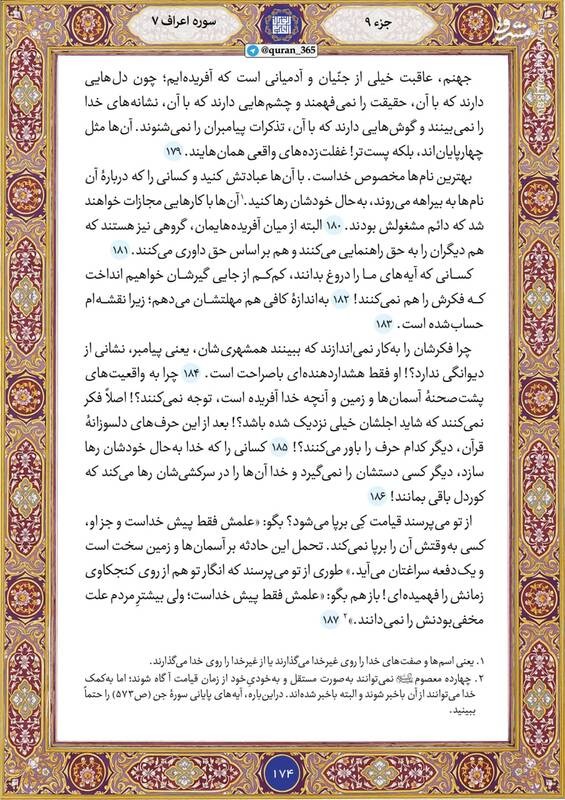 جزء ۹
سوره اعراف ۷
@quran_365
جهنم، عاقبت خیلی از جنّیان و آدمیانی است که آفریده‌ایم؛ چون دل‌هایی
دارند که با آن، حقیقت را نمی‌فهمند و چشم‌هایی دارند که با آن، نشانه‌های خدا
را نمی‌بینند و گوش‌هایی دارند که با آن، تذکرات پیامبران را نمی‌شنوند. آن‌ها مثل
چهارپایان‌اند، بلکه پست‌تر! غفلت‌زده‌های واقعی همان‌هایند. ۱۷۹
بهترین نام‌ها مخصوص خداست. با آن‌ها عبادتش کنید و کسانی را که دربارهٔ آن
نام‌ها به بیراهه می‌روند، به‌حال خودشان رها کنید.۱ آن‌ها با کارهایی مجازات خواهند
شد که دائم مشغولش بودند. ۱۸۰ البته از میان آفریده‌هایمان، گروهی نیز هستند که
هم دیگران را به حق راهنمایی می‌کنند و هم بر اساس حق داوری می‌کنند. ۱۸۱
کسانی که آیه‌های ما را دروغ بدانند، کم‌کم از جایی گیرشان خواهیم انداخت
که فکرش را هم نمی‌کنند! ۱۸۲ به‌اندازهٔ کافی هم مهلتشان می‌دهم؛ زیرا نقشه‌ام
حساب‌شده است. ۱۸۳
چرا فکرشان را به‌کار نمی‌اندازند که ببینند همشهری‌شان، یعنی پیامبر، نشانی از
دیوانگی ندارد؟! او فقط هشداردهنده‌ای باصراحت است. ۱۸۴ چرا به واقعیت‌های
پشت‌صحنهٔ آسمان‌ها و زمین و آنچه خدا آفریده است، توجه نمی‌کنند؟! اصلاً فکر
نمی‌کنند که شاید اجلشان خیلی نزدیک شده باشد؟! بعد از این حرف‌های دلسوزانهٔ
قرآن، دیگر کدام حرف را باور می‌کنند؟! ۱۸۵ کسانی را که خدا به‌حال خودشان رها
سازد، دیگر کسی دستشان را نمی‌گیرد و خدا آن‌ها را در سرکشی‌شان رها می‌کند که
کوردل باقی بمانند! ۱۸۶
از تو می‌پرسند قیامت کِی برپا می‌شود؟ بگو: «علمش فقط پیش خداست و جز او،
کسی به‌وقتش آن را برپا نمی‌کند. تحمل این حادثه بر آسمان‌ها و زمین سخت است
و یک‌دفعه سراغتان می‌آید.» طوری از تو می‌پرسند که انگار تو هم از روی کنجکاوی
زمانش را فهمیده‌ای! باز هم بگو: «علمش فقط پیش خداست؛ ولی بیشترِ مردم علت
مخفی‌بودنش را نمی‌دانند.»۲ ۱۸۷
۱. یعنی اسم‌ها و صفت‌های خدا را روی غیرخدا می‌گذارند یا از غیرخدا را روی خدا می‌گذارند.
۲. چهارده معصوم نمی‌توانند به‌صورت مستقل و به‌خودیِ‌خود از زمان قیامت آگاه شوند؛ اما به‌کمک
خدا می‌توانند از آن باخبر شوند و البته باخبر شده‌اند. دراین‌باره، آیه‌های پایانی سورهٔ جن (ص۵۷۳) را حتماً
ببینید.
۱۷۴